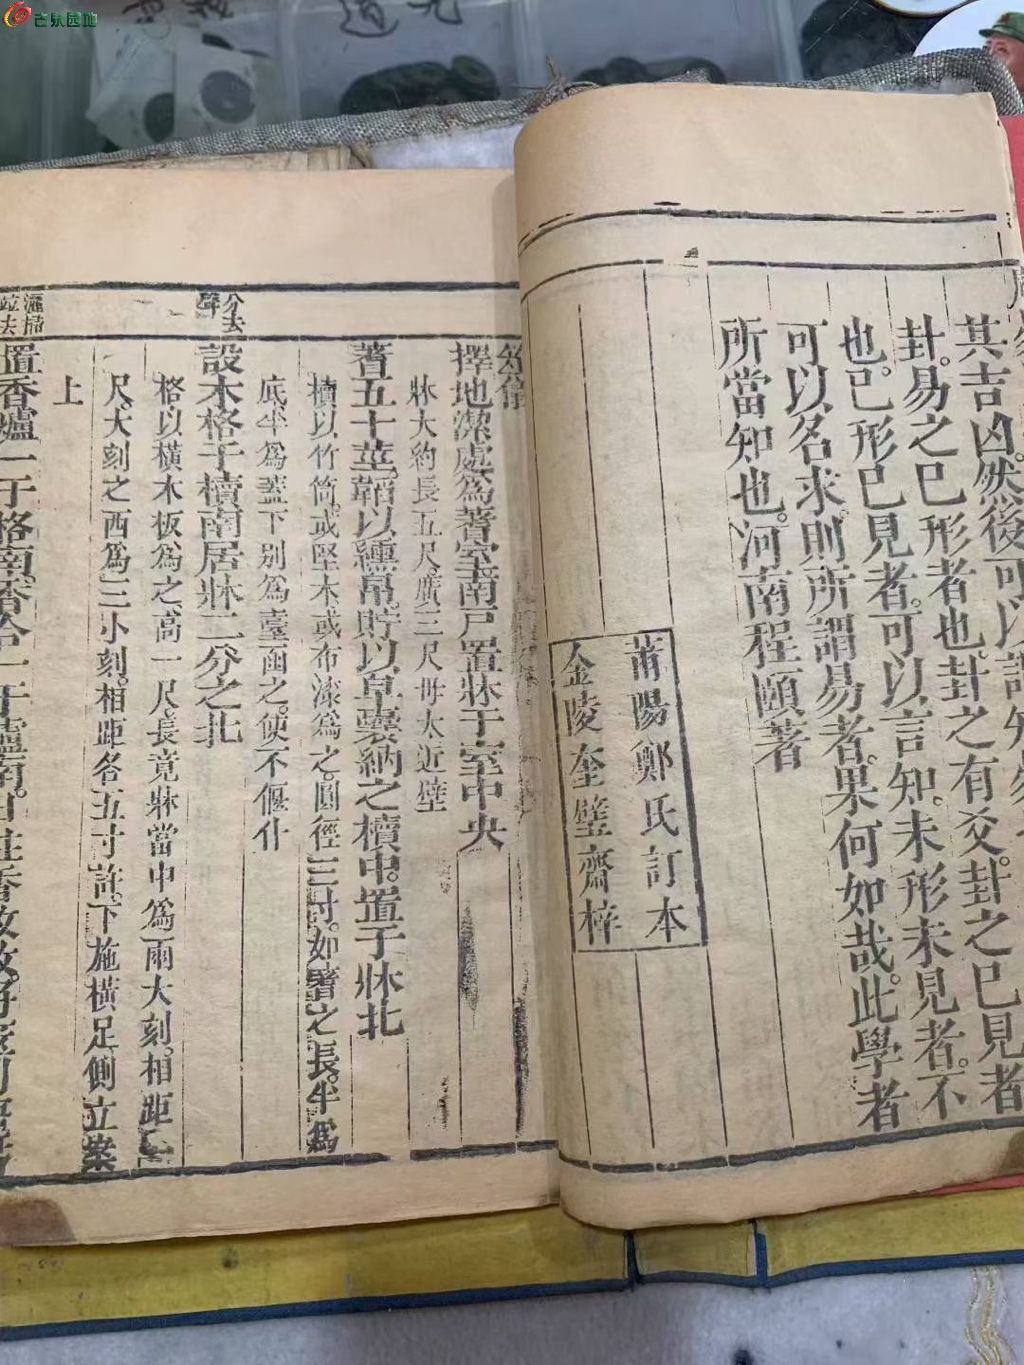 古泉园地
其吉凶然後可以謂知易
卦易之已形者也卦之有爻卦之已見者
也已形已見者可以言知未形未見者不
可以名求則所謂易者果何如哉此學者
所當知也河南程頤著
莆陽鄭氏訂本
金陵奎壁齋梓
筮儀
擇地潔處為蓍室南戸置牀于室中央
牀大約長五尺廣三尺毋太近壁
蓍五十莖韜以纁帛貯以皁囊納之櫝中置于牀北
櫝以竹筒或堅木或布漆為之圓徑三寸如蓍之長半為
底半為蓋下別為臺函之使不偃仆
分去聲
設木格于櫝南居牀二分之北
格以橫木板為之高一尺長竟牀當中為兩大刻相距一
尺大刻之西為三小刻相距各五寸許下施橫足側立案
上
灑掃竝去
置香爐一于格南香合一于爐南日炷香致敬將